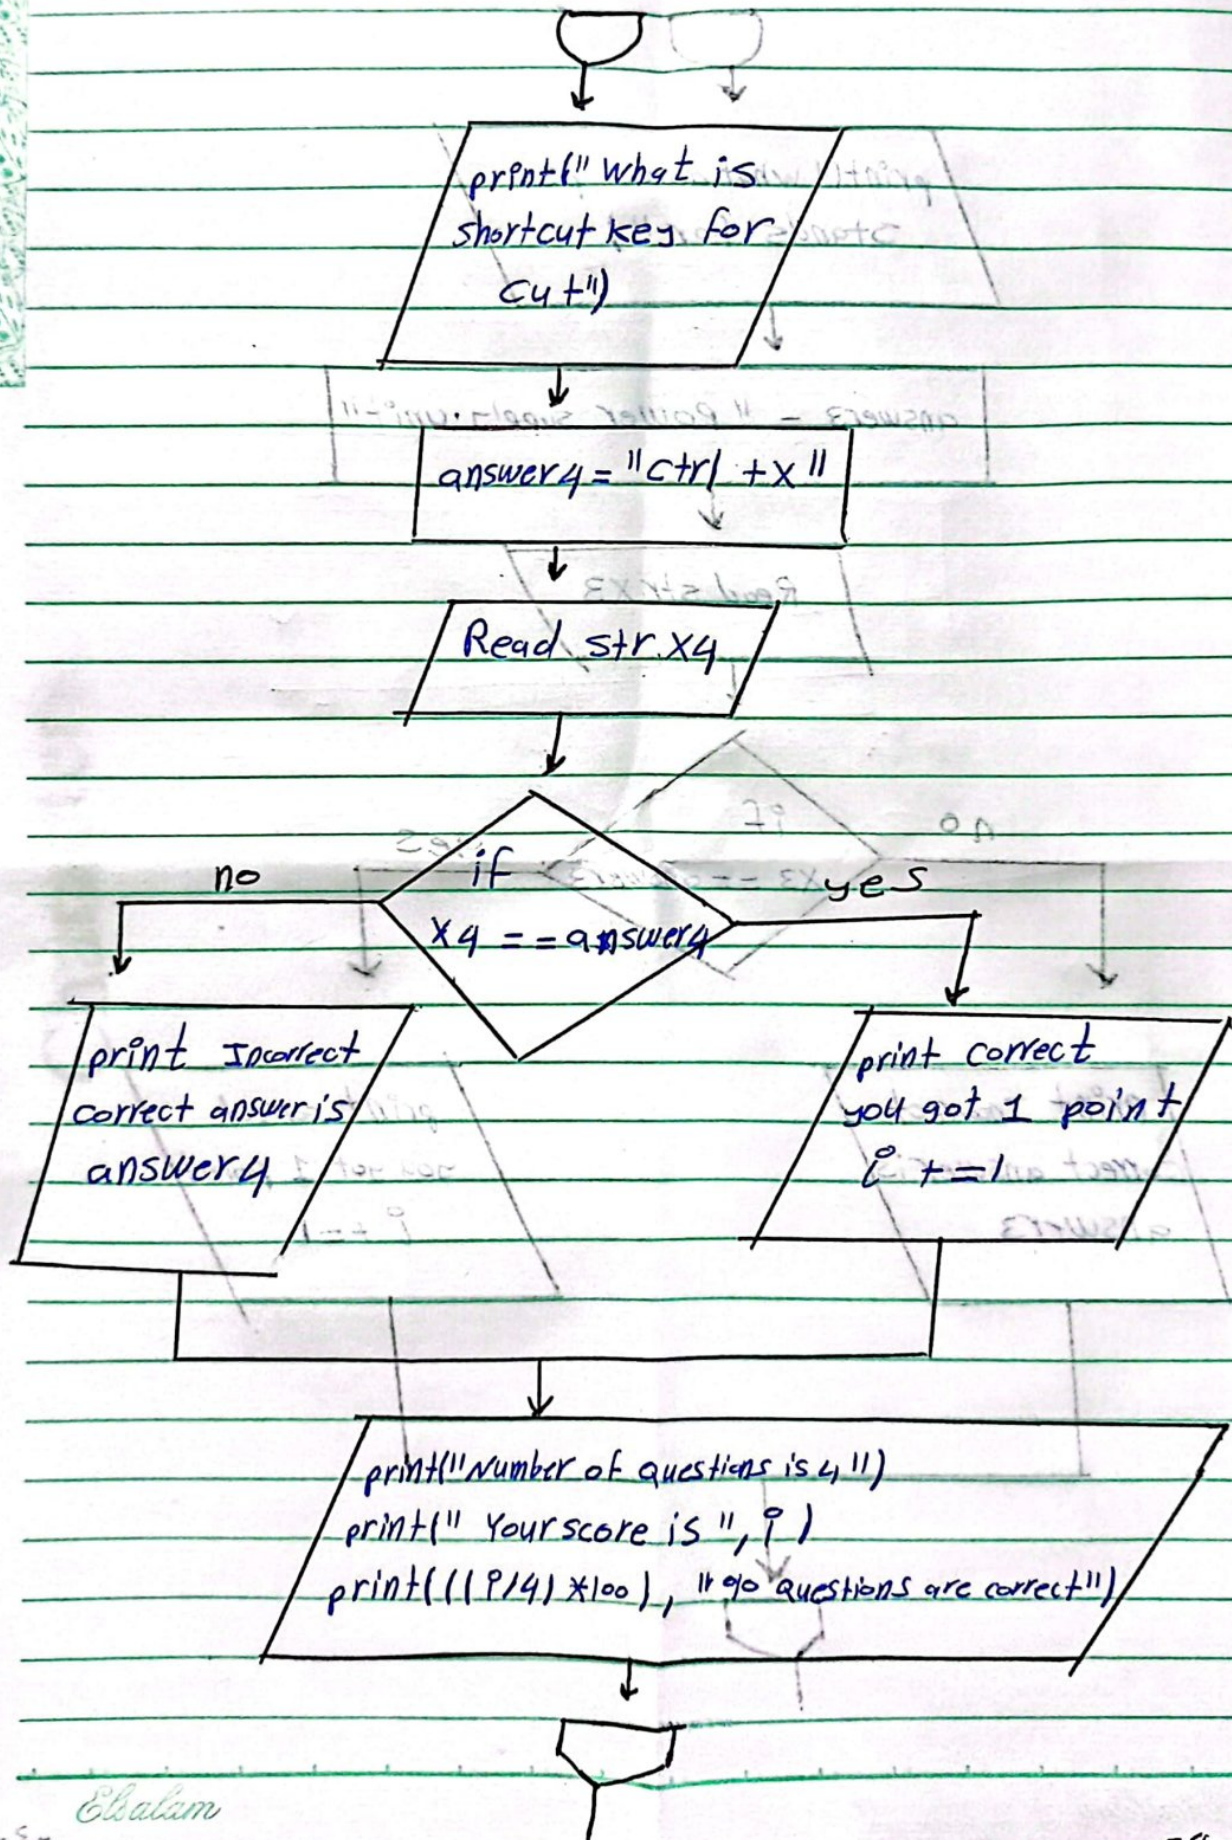 print(" what is
shortcut key for
cut")
answer4 = "ctrl + x"
Read str x4
if
x4 == answer4
no
yes
print Incorrect
correct answer is
answer4
print correct
you got 1 point
i += 1
print("Number of questions is 4")
print(" Your score is ", i )
print(((i/4) *100), "% questions are correct")
Elsalam